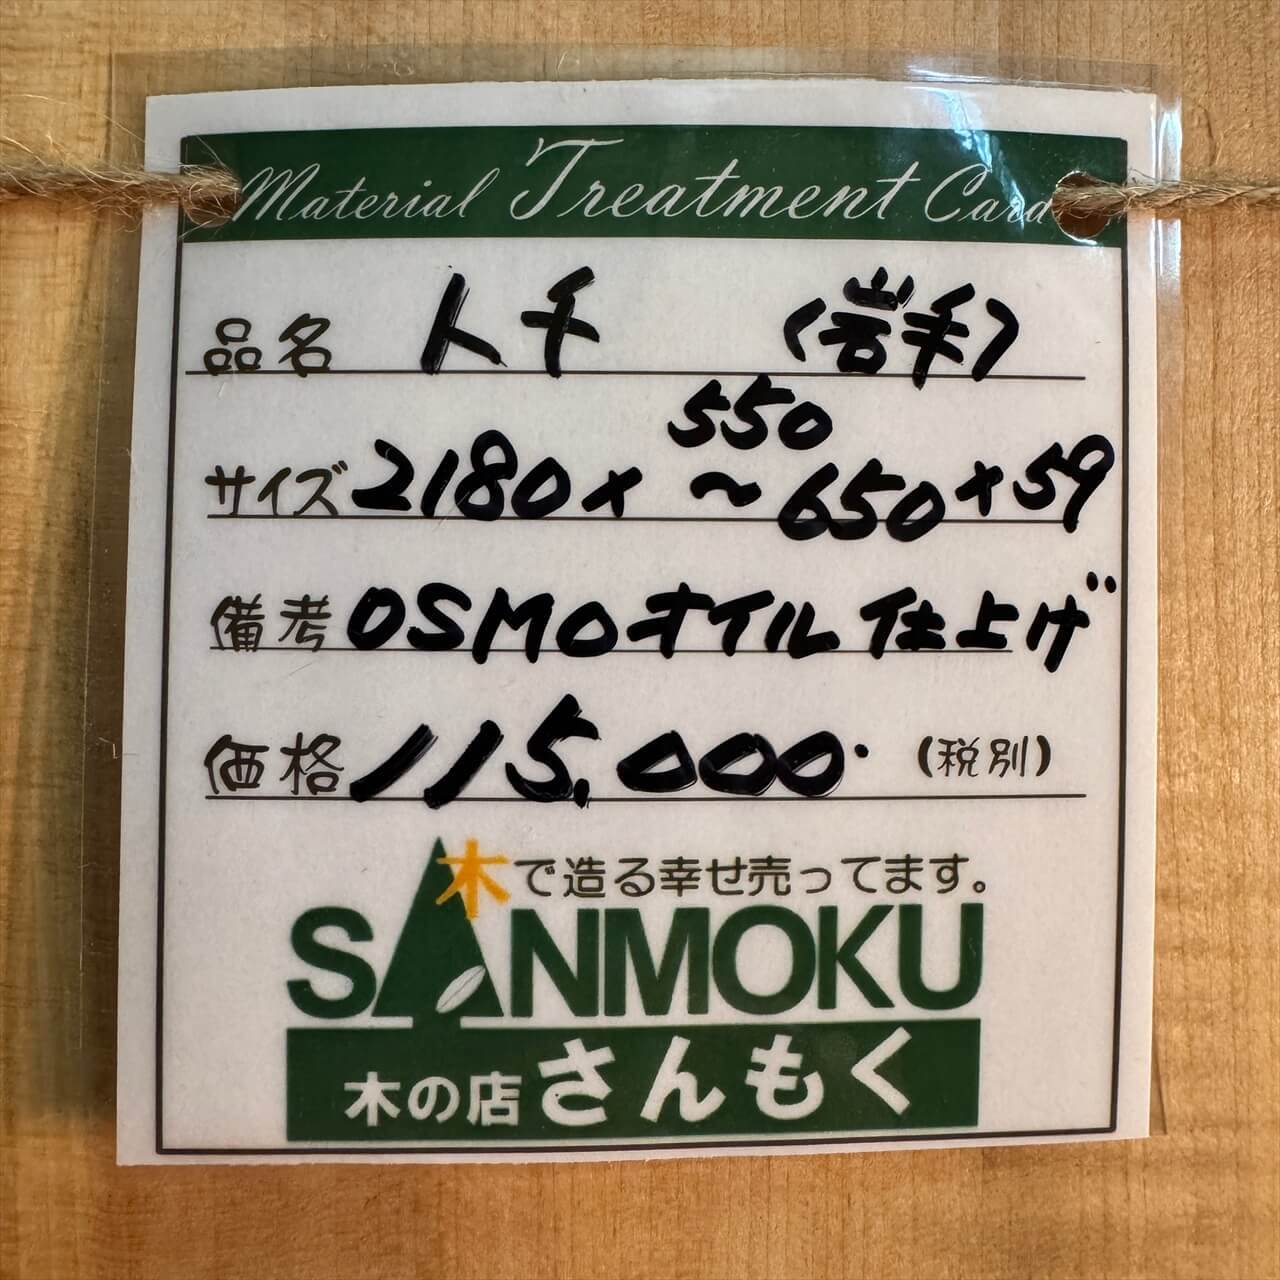 Material Treatment Card
品名 トチ (岩手)
550
サイズ 2180× 〜650×59
備考 OSMOオイル仕上げ
価格 115,000. (税別)
木で造る幸せ売ってます。
SANMOKU
木の店 さんもく